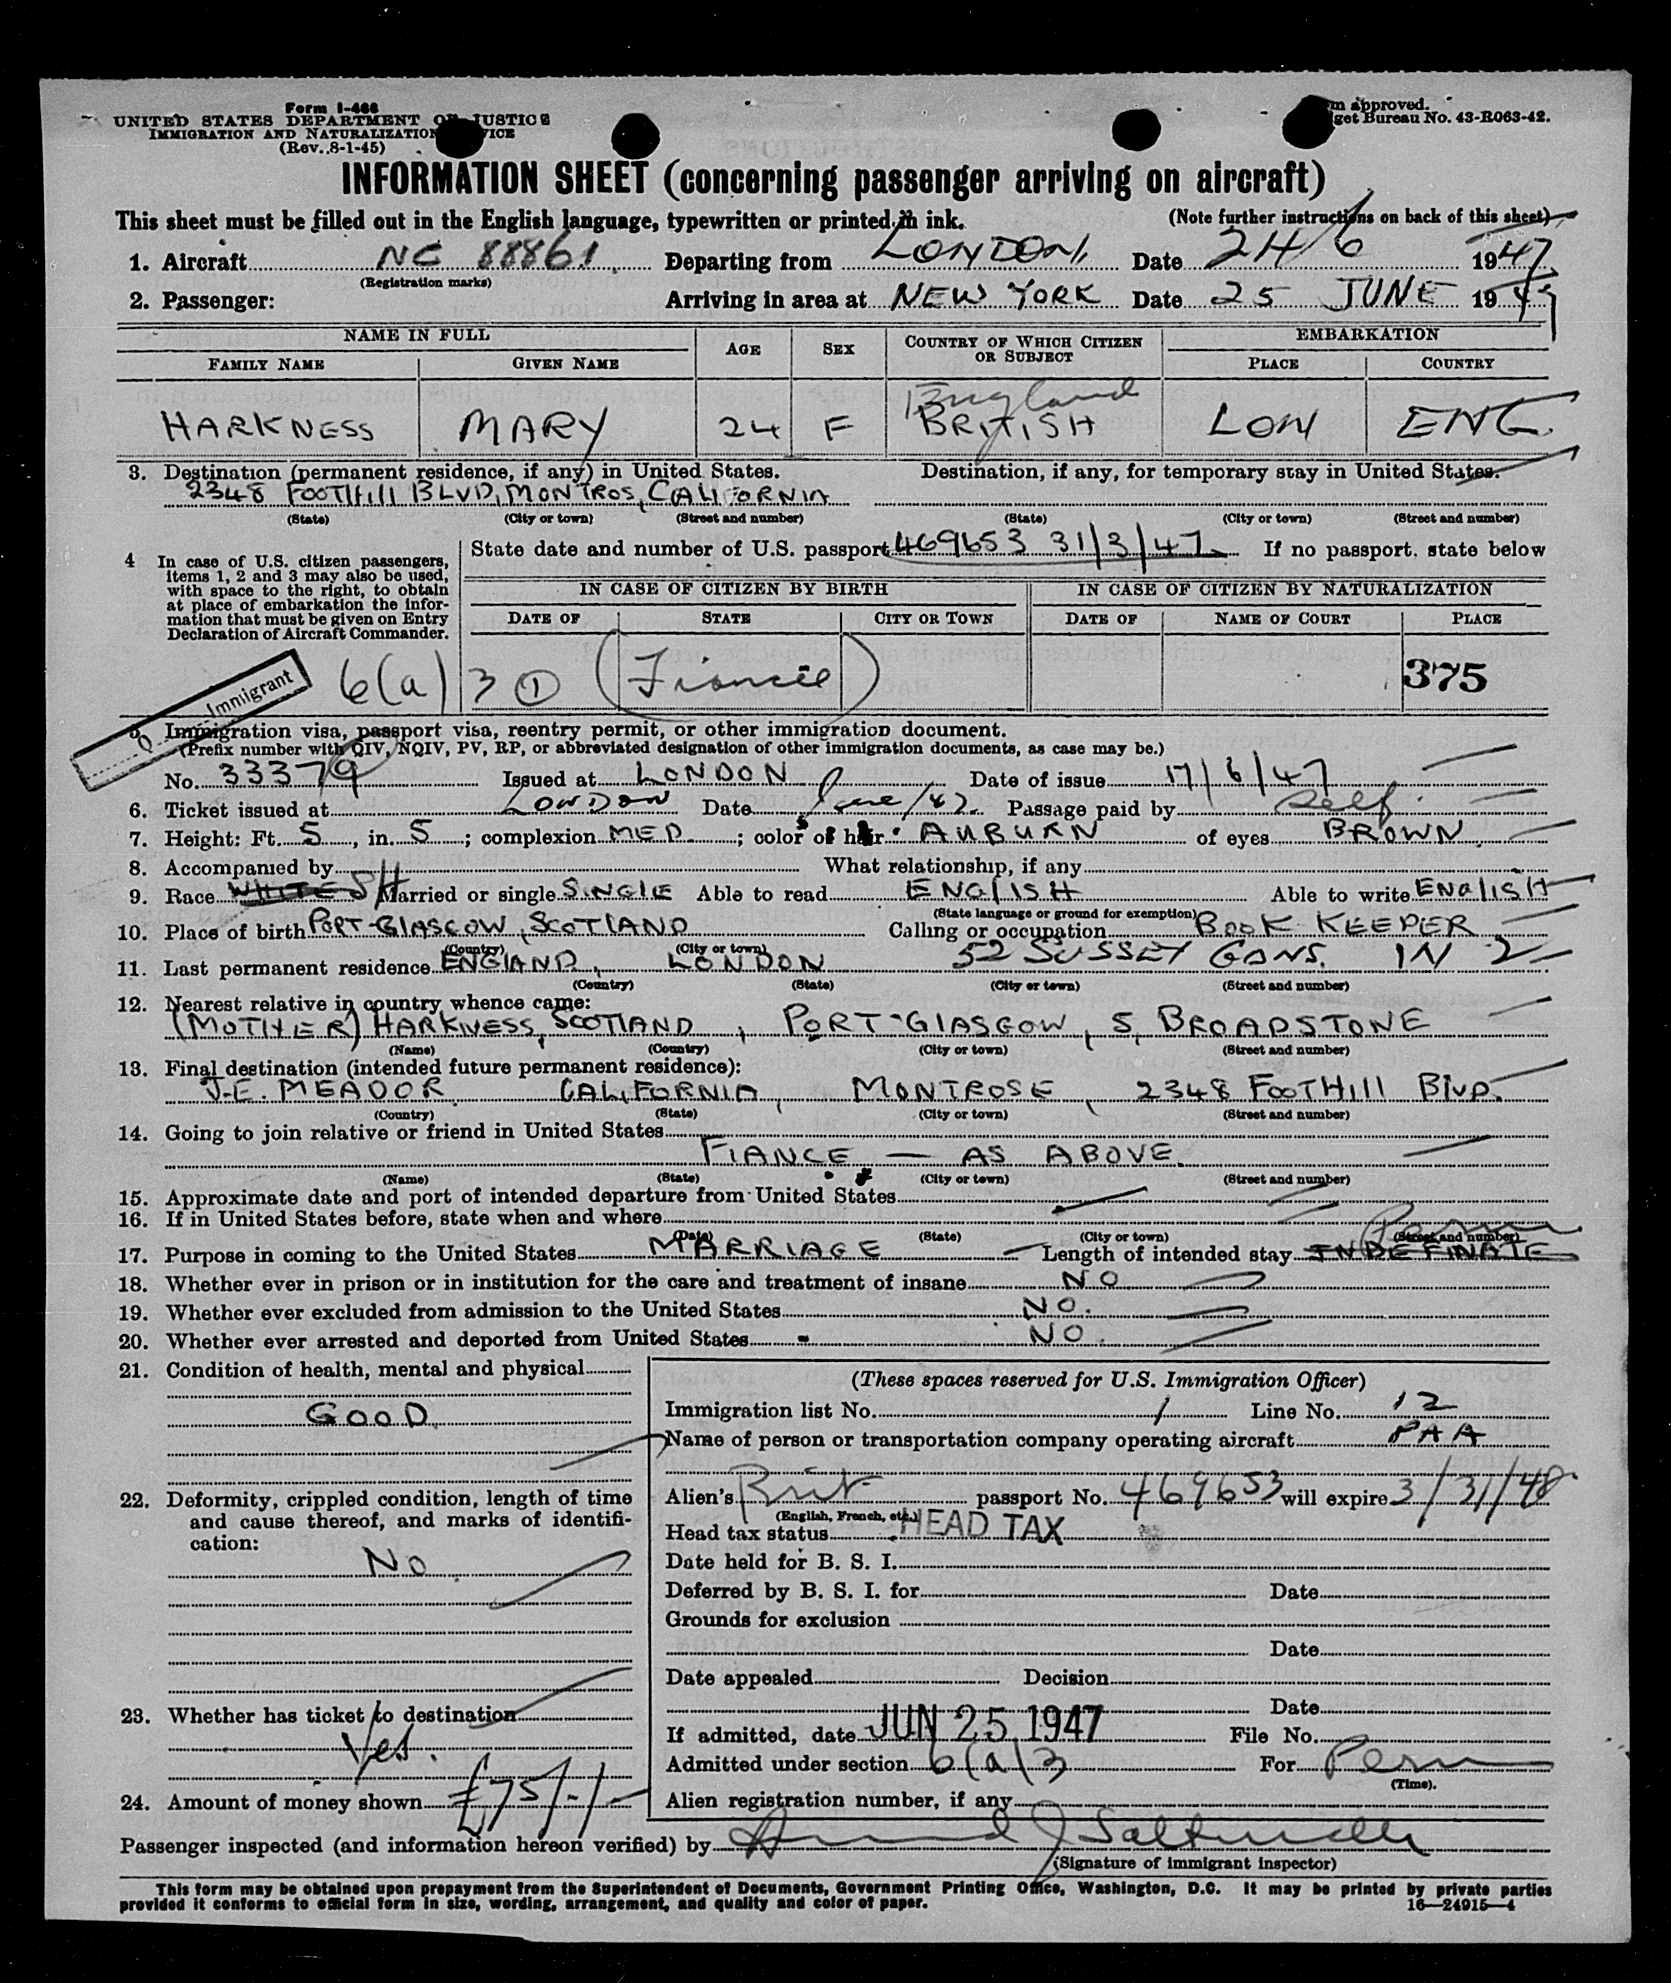 Form I-466
UNITED STATES DEPARTMENT OF JUSTICE
IMMIGRATION AND NATURALIZATION SERVICE
(Rev. 8-1-45)
m approved.
get Bureau No. 43-R063-42.
INFORMATION SHEET (concerning passenger arriving on aircraft)
This sheet must be filled out in the English language, typewritten or printed in ink. (Note further instructions on back of this sheet)
1. Aircraft NC 88861 Departing from LONDON Date 24/6 1947
(Registration marks)
2. Passenger: Arriving in area at NEW YORK Date 25 JUNE 1947
NAME IN FULL AGE SEX COUNTRY OF WHICH CITIZEN OR SUBJECT EMBARKATION
FAMILY NAME GIVEN NAME PLACE COUNTRY
England
HARKNESS MARY 24 F BRITISH LON ENG.
3. Destination (permanent residence, if any) in United States. Destination, if any, for temporary stay in United States.
2348 FOOTHILL BLVD, MONTROS, CALIFORNIA
(State) (City or town) (Street and number) (State) (City or town) (Street and number)
4 In case of U.S. citizen passengers, items 1, 2 and 3 may also be used, with space to the right, to obtain at place of embarkation the information that must be given on Entry Declaration of Aircraft Commander.
State date and number of U.S. passport 469653 31/3/47 If no passport. state below
IN CASE OF CITIZEN BY BIRTH IN CASE OF CITIZEN BY NATURALIZATION
DATE OF STATE CITY OR TOWN DATE OF NAME OF COURT PLACE
Immigrant 6(a) 3 1 (Fiancée) 375
5 Immigration visa, passport visa, reentry permit, or other immigration document.
(Prefix number with QIV, NQIV, PV, RP, or abbreviated designation of other immigration documents, as case may be.)
No. 33379 Issued at LONDON Date of issue 17/6/47
6. Ticket issued at LONDON Date June/47. Passage paid by Self.
7. Height: Ft. 5, in. 5; complexion MED.; color of hair AUBURN of eyes BROWN
8. Accompanied by What relationship, if any
9. Race WHITE SH Married or single SINGLE Able to read ENGLISH Able to write ENGLISH
(State language or ground for exemption)
10. Place of birth PORT-GLASGOW, SCOTLAND Calling or occupation BOOK KEEPER
(Country) (City or town)
11. Last permanent residence ENGLAND, LONDON 52 SUSSEX GDNS. W 2
(Country) (State) (City or town) (Street and number)
12. Nearest relative in country whence came:
(MOTHER) HARKNESS, SCOTLAND, PORT-GLASGOW, 5, BROADSTONE
(Name) (Country) (City or town) (Street and number)
13. Final destination (intended future permanent residence):
J.E. MEADOR CALIFORNIA, MONTROSE, 2348 FOOTHILL BLVD.
(Country) (State) (City or town) (Street and number)
14. Going to join relative or friend in United States
FIANCE — AS ABOVE.
(Name) (State) (City or town) (Street and number)
15. Approximate date and port of intended departure from United States
16. If in United States before, state when and where
(Date) (State) (City or town) (Street and number)
Perm
17. Purpose in coming to the United States MARRIAGE Length of intended stay INDEFINATE
18. Whether ever in prison or in institution for the care and treatment of insane NO
19. Whether ever excluded from admission to the United States NO.
20. Whether ever arrested and deported from United States NO.
21. Condition of health, mental and physical
GOOD
22. Deformity, crippled condition, length of time and cause thereof, and marks of identification:
NO.
23. Whether has ticket to destination
Yes.
24. Amount of money shown £75/-/-
(These spaces reserved for U.S. Immigration Officer)
Immigration list No. 1 Line No. 12
Name of person or transportation company operating aircraft PAA
Alien's Brit passport No. 469653 will expire 3/31/48.
(English, French, etc.)
Head tax status HEAD TAX
Date held for B. S. I.
Deferred by B. S. I. for Date
Grounds for exclusion
Date
Date appealed Decision
Date
If admitted, date JUN 25 1947 File No.
Admitted under section 6(a)3 For Perm
(Time).
Alien registration number, if any
Passenger inspected (and information hereon verified) by
(Signature of immigrant inspector)
This form may be obtained upon prepayment from the Superintendent of Documents, Government Printing Office, Washington, D.C. It may be printed by private parties
provided it conforms to official form in size, wording, arrangement, and quality and color of paper. 16—24915—4